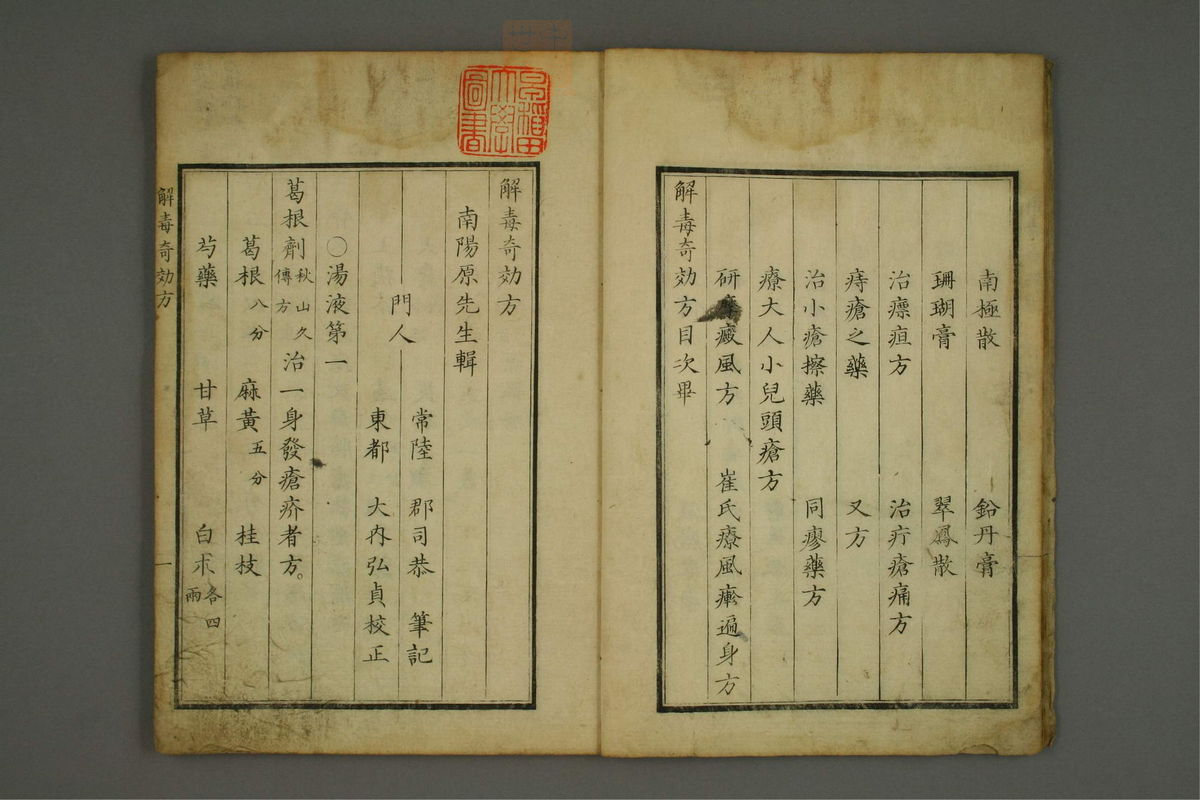 南極散 鉛丹膏
珊瑚膏 翠鳳散
治瘭疽方 治疔瘡痛方
痔瘡之藥 又方
治小瘡擦藥 同瘳藥方
療大人小兒頭瘡方
研 癜風方 崔氏療風㾗遍身方
解毒奇効方目次畢
早稲田大學圖書
解毒奇効方
南陽原先生輯
門人
常陸 郡司恭 筆記
東都 大內弘貞校正
〇湯液第一
葛根劑 秋山久傳方 治一身發瘡疥者方。
葛根八分 麻黃五分 桂枝
芍藥 甘草 白朮各四兩
解毒奇効方 一